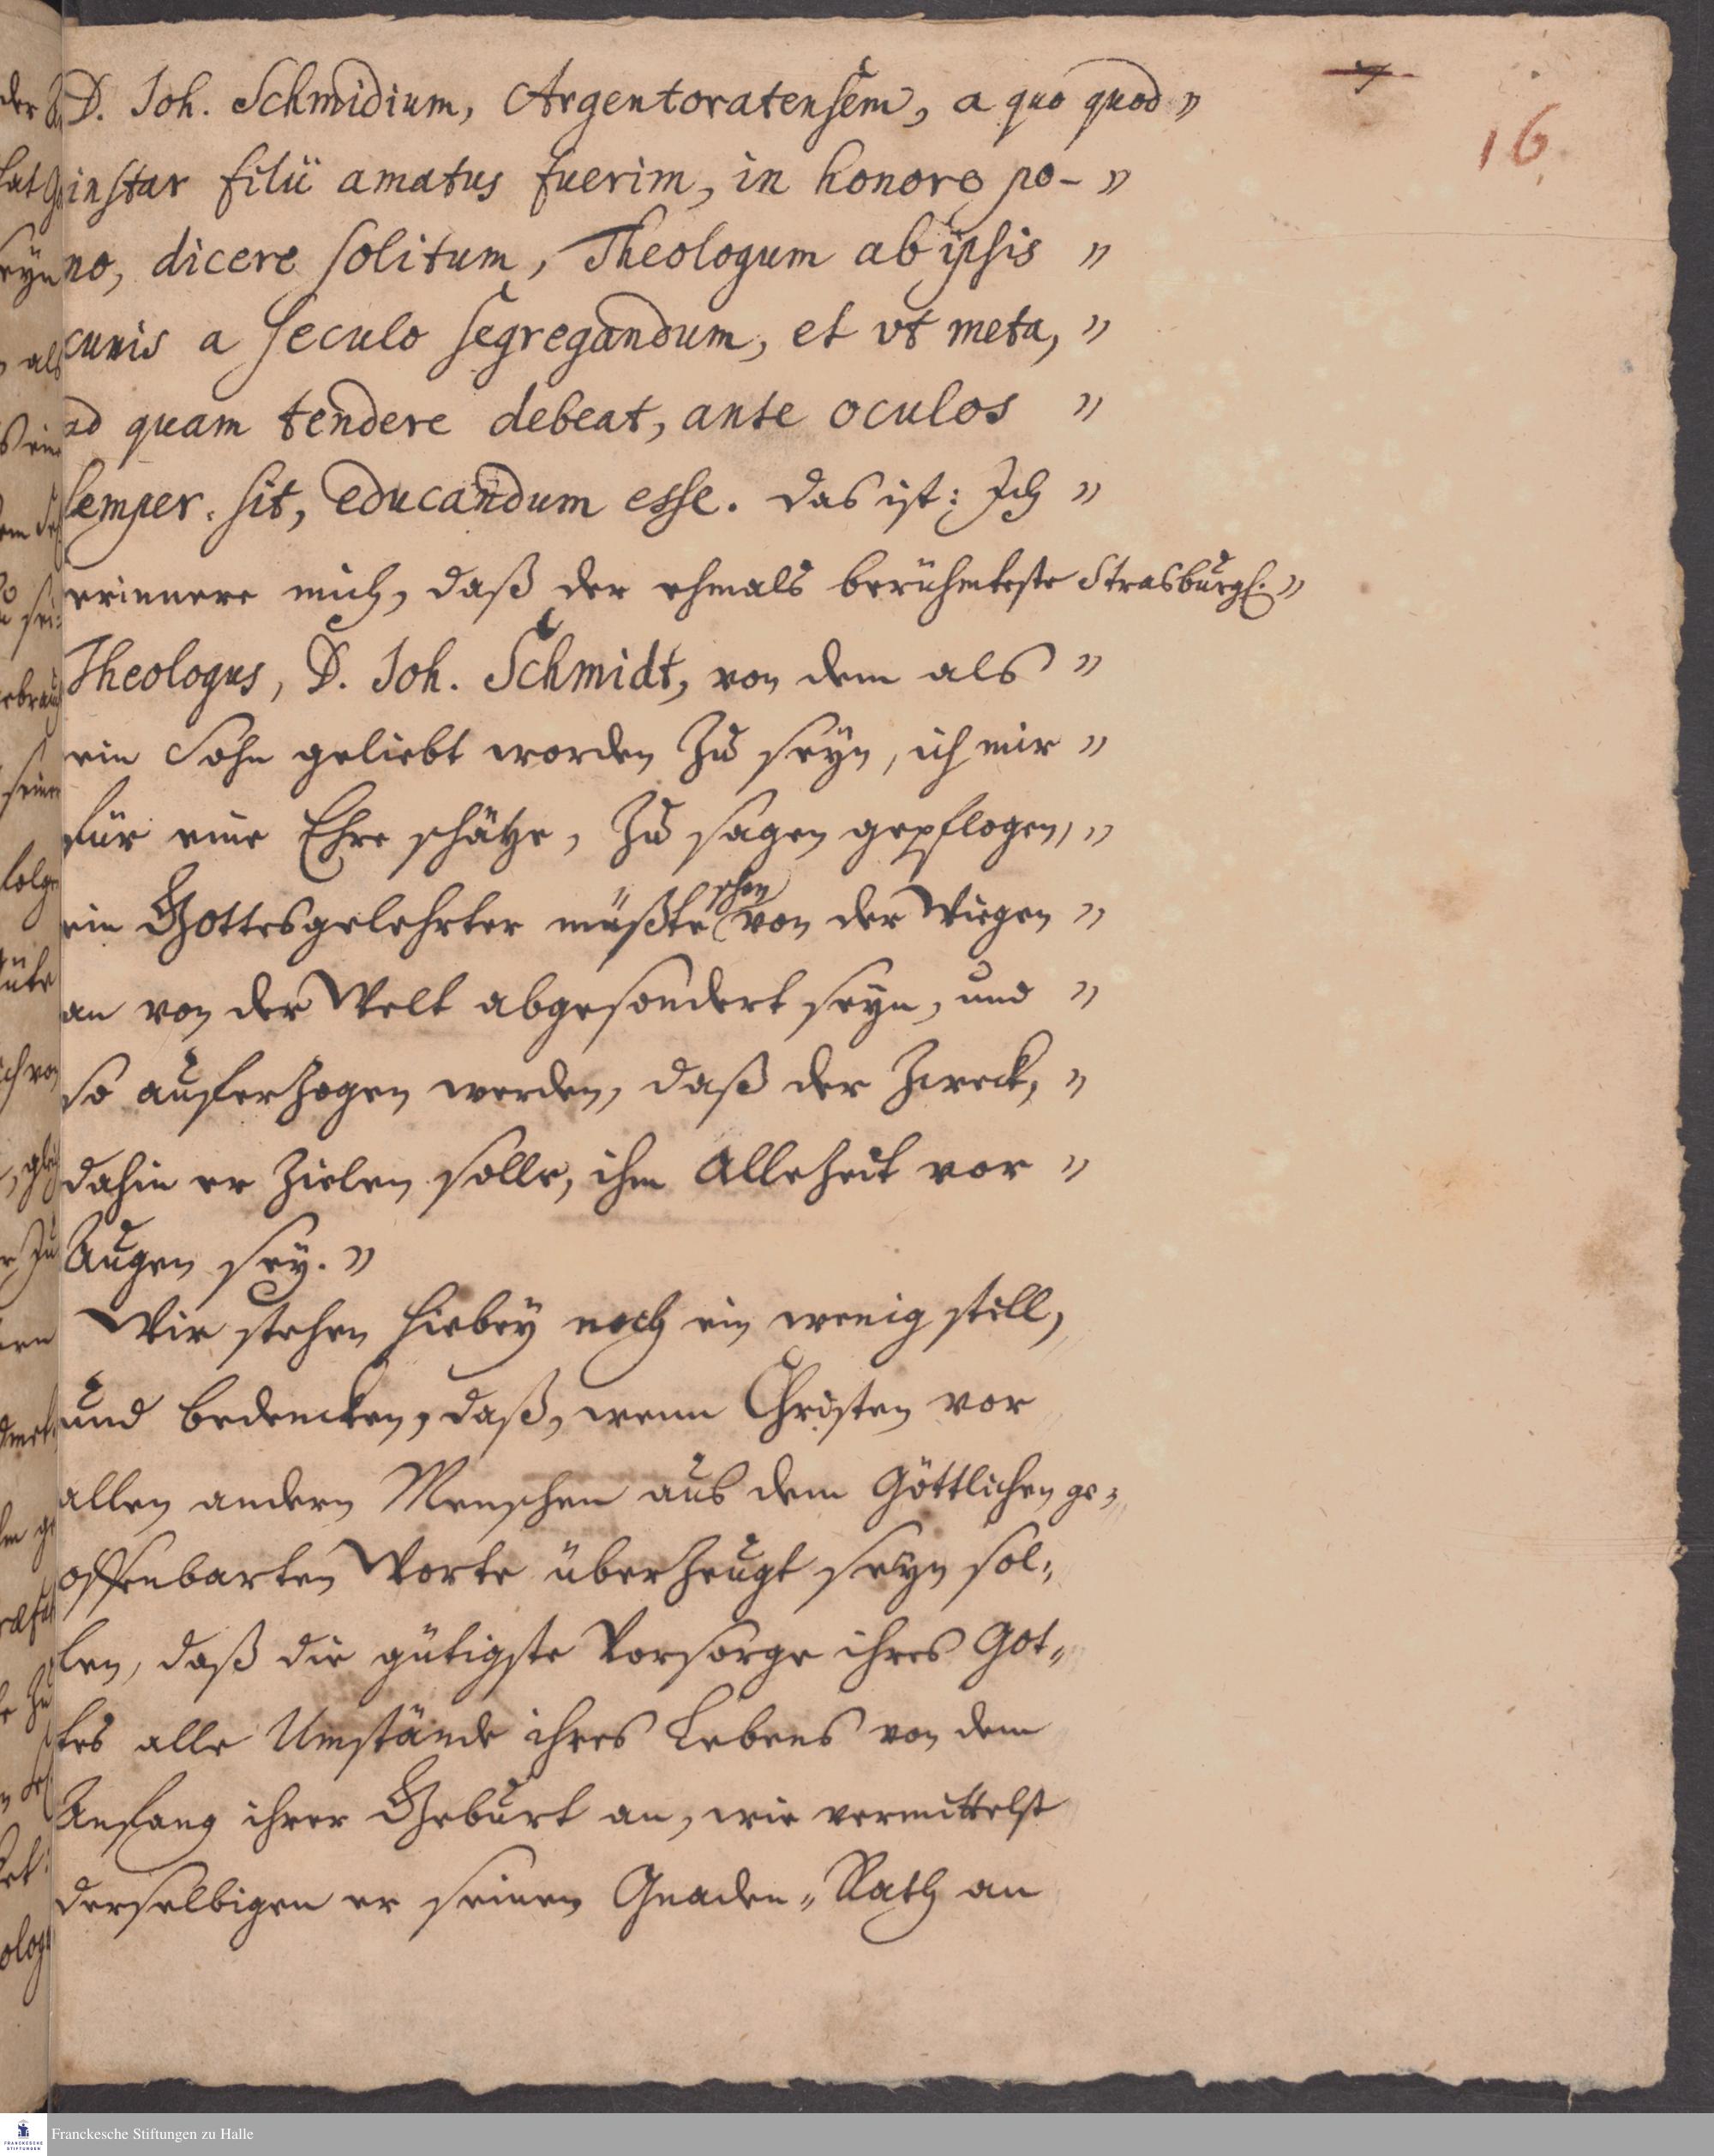 16.
D. Joh. Schmidium, Argentoratensem, a quo quod "
instar filii amatus fuerim, in honore po- "
no, dicere solitum, Theologum ab ipsis "
cunis a seculo segregandum, et vt meta, "
ad quam tendere debeat, ante oculos "
semper sit, educandum esse. Das ist: Ich "
erinnere mich, daß der ehmals berühmteste Strasburgs. "
Theologus, D. Joh. Schmidt, von dem als "
ein Sohn geliebt worden zu seyn, ich mir "
für eine Ehre schätze, zu sagen gepflogen, "
ein Gottesgelehrter müßte schon von der Wiegen "
an von der Welt abgesondert seyn, und "
so auferzogen werden, daß der Zweck, "
dahin er zielen solle, ihm allezeit vor "
Augen sey. "
Wir stehen hiebey noch ein wenig still,
und bedencken, daß, wenn Christen vor
allen andern Menschen aus dem Göttlichen ge-
offenbarten Worte überzeugt seyn sol-
len, daß die gütigste Vorsorge ihres Got-
tes alle Umstände ihres Lebens von dem
Anfang ihrer Geburt an, wie vermittelst
derselbigen er seinen Gnaden-Rath an
Franckesche Stiftungen zu Halle